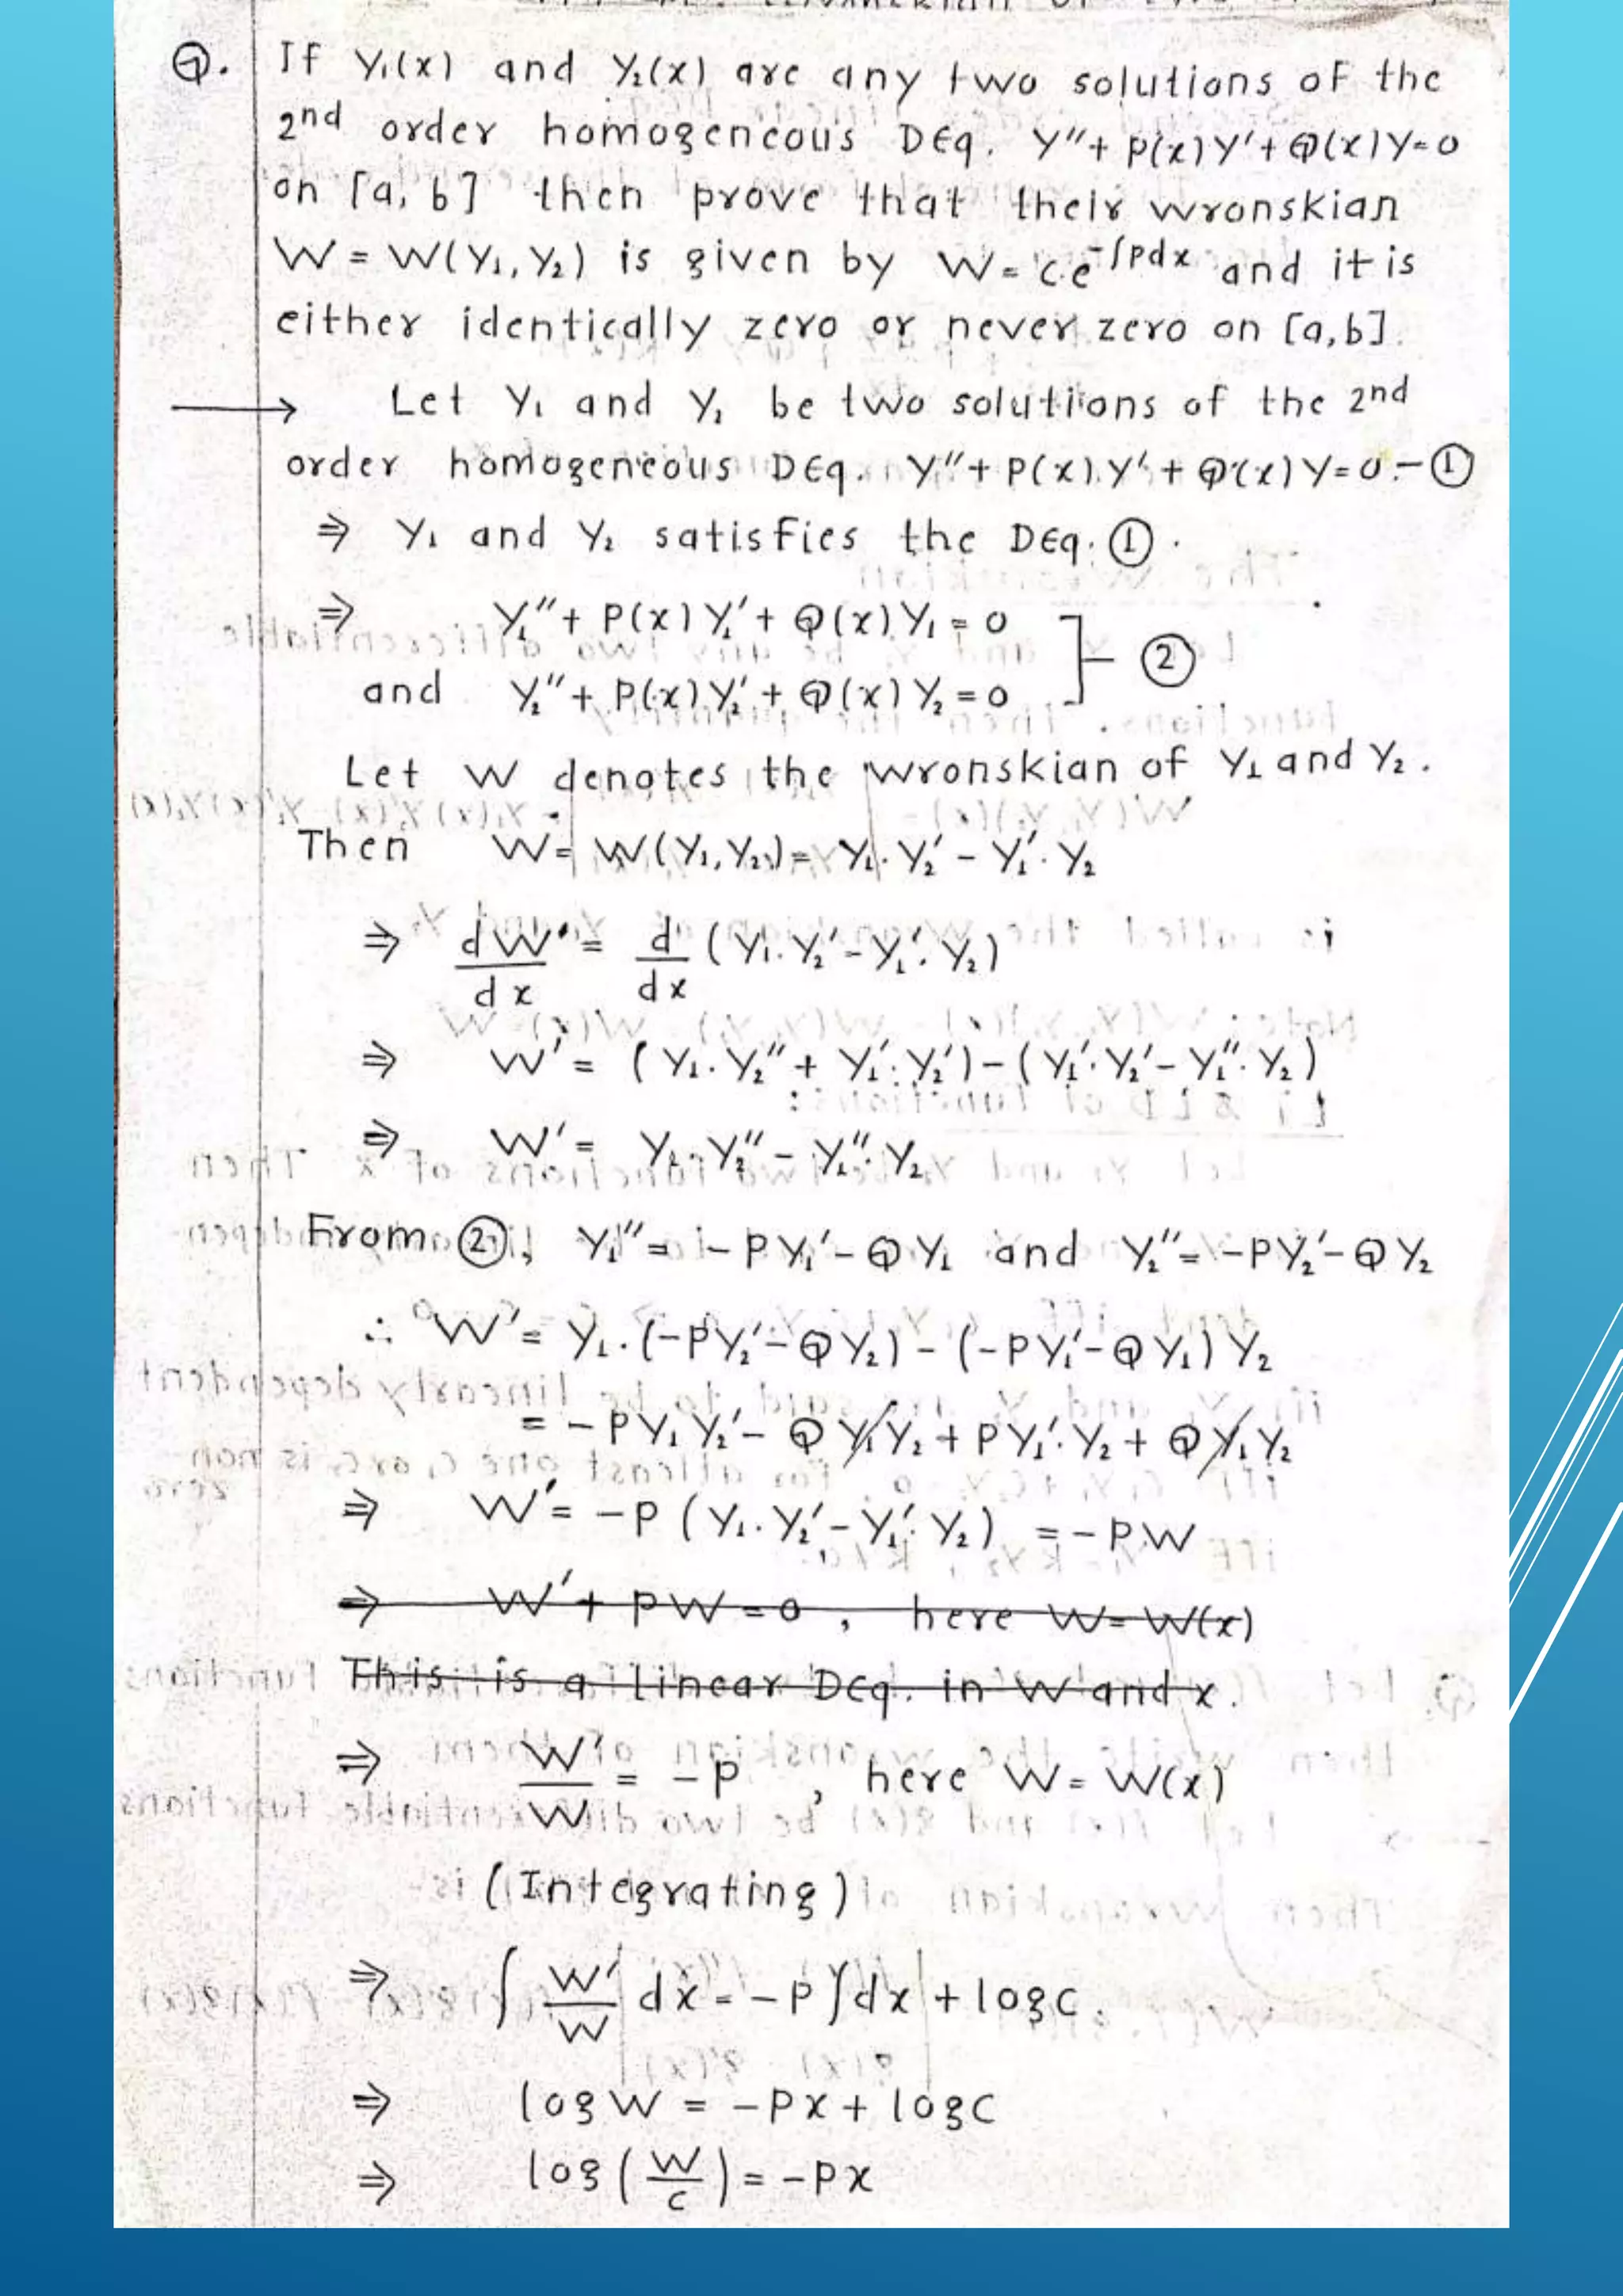 Q. If Y₁(x) and Y₂(x) are any two solutions of the
2nd order homogeneous DEq. Y″+ P(x)Y′+Q(x)Y=0
on [a, b] then prove that their wronskian
W = W(Y₁, Y₂) is given by W = c.e^-∫Pdx and it is
either identically zero or never zero on [a,b].
→ Let Y₁ and Y₂ be two solutions of the 2nd
order homogeneous DEq. Y″+ P(x).Y′+ Q(x)Y=0.-①
⇒ Y₁ and Y₂ satisfies the DEq. ①.
⇒ Y₁″+ P(x)Y₁′+ Q(x).Y₁ = 0
and Y₂″+ P(x)Y₂′+ Q(x)Y₂ = 0 ]- ②
Let W denotes the wronskian of Y₁ and Y₂.
Then W = W(Y₁, Y₂) = Y₁. Y₂′ - Y₁′. Y₂
⇒ dW/dx = d/dx (Y₁.Y₂′-Y₁′.Y₂)
⇒ W′= (Y₁.Y₂″+ Y₁′.Y₂′)-(Y₁′.Y₂′- Y₁″.Y₂)
⇒ W′= Y₁.Y₂″- Y₁″.Y₂
From ②, Y₁″= -PY₁′-QY₁ and Y₂″= -PY₂′-QY₂
∴ W′= Y₁.(-PY₂′-QY₂) - (-PY₁′-QY₁)Y₂
= -PY₁Y₂′- QY₁Y₂ + PY₁′.Y₂ + QY₁Y₂
⇒ W′= -P (Y₁.Y₂′-Y₁′.Y₂) = -P.W
⇒ W′+ PW = 0 , here W= W(x)
This is a Linear DEq. in W and x.
⇒ W′/W = -P , here W= W(x)
(Integrating)
⇒ ∫ W′/W dx = -P∫dx + logc.
⇒ logW = -Px + logc
⇒ log(W/c) = -Px